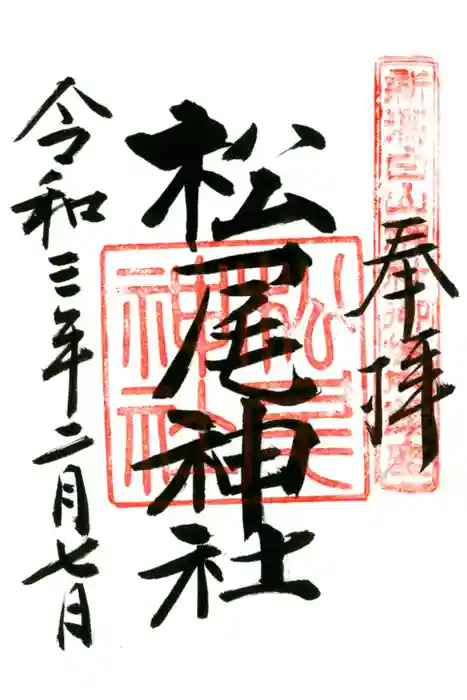 奉拝
松尾神社
松尾神社
令和三年二月七月